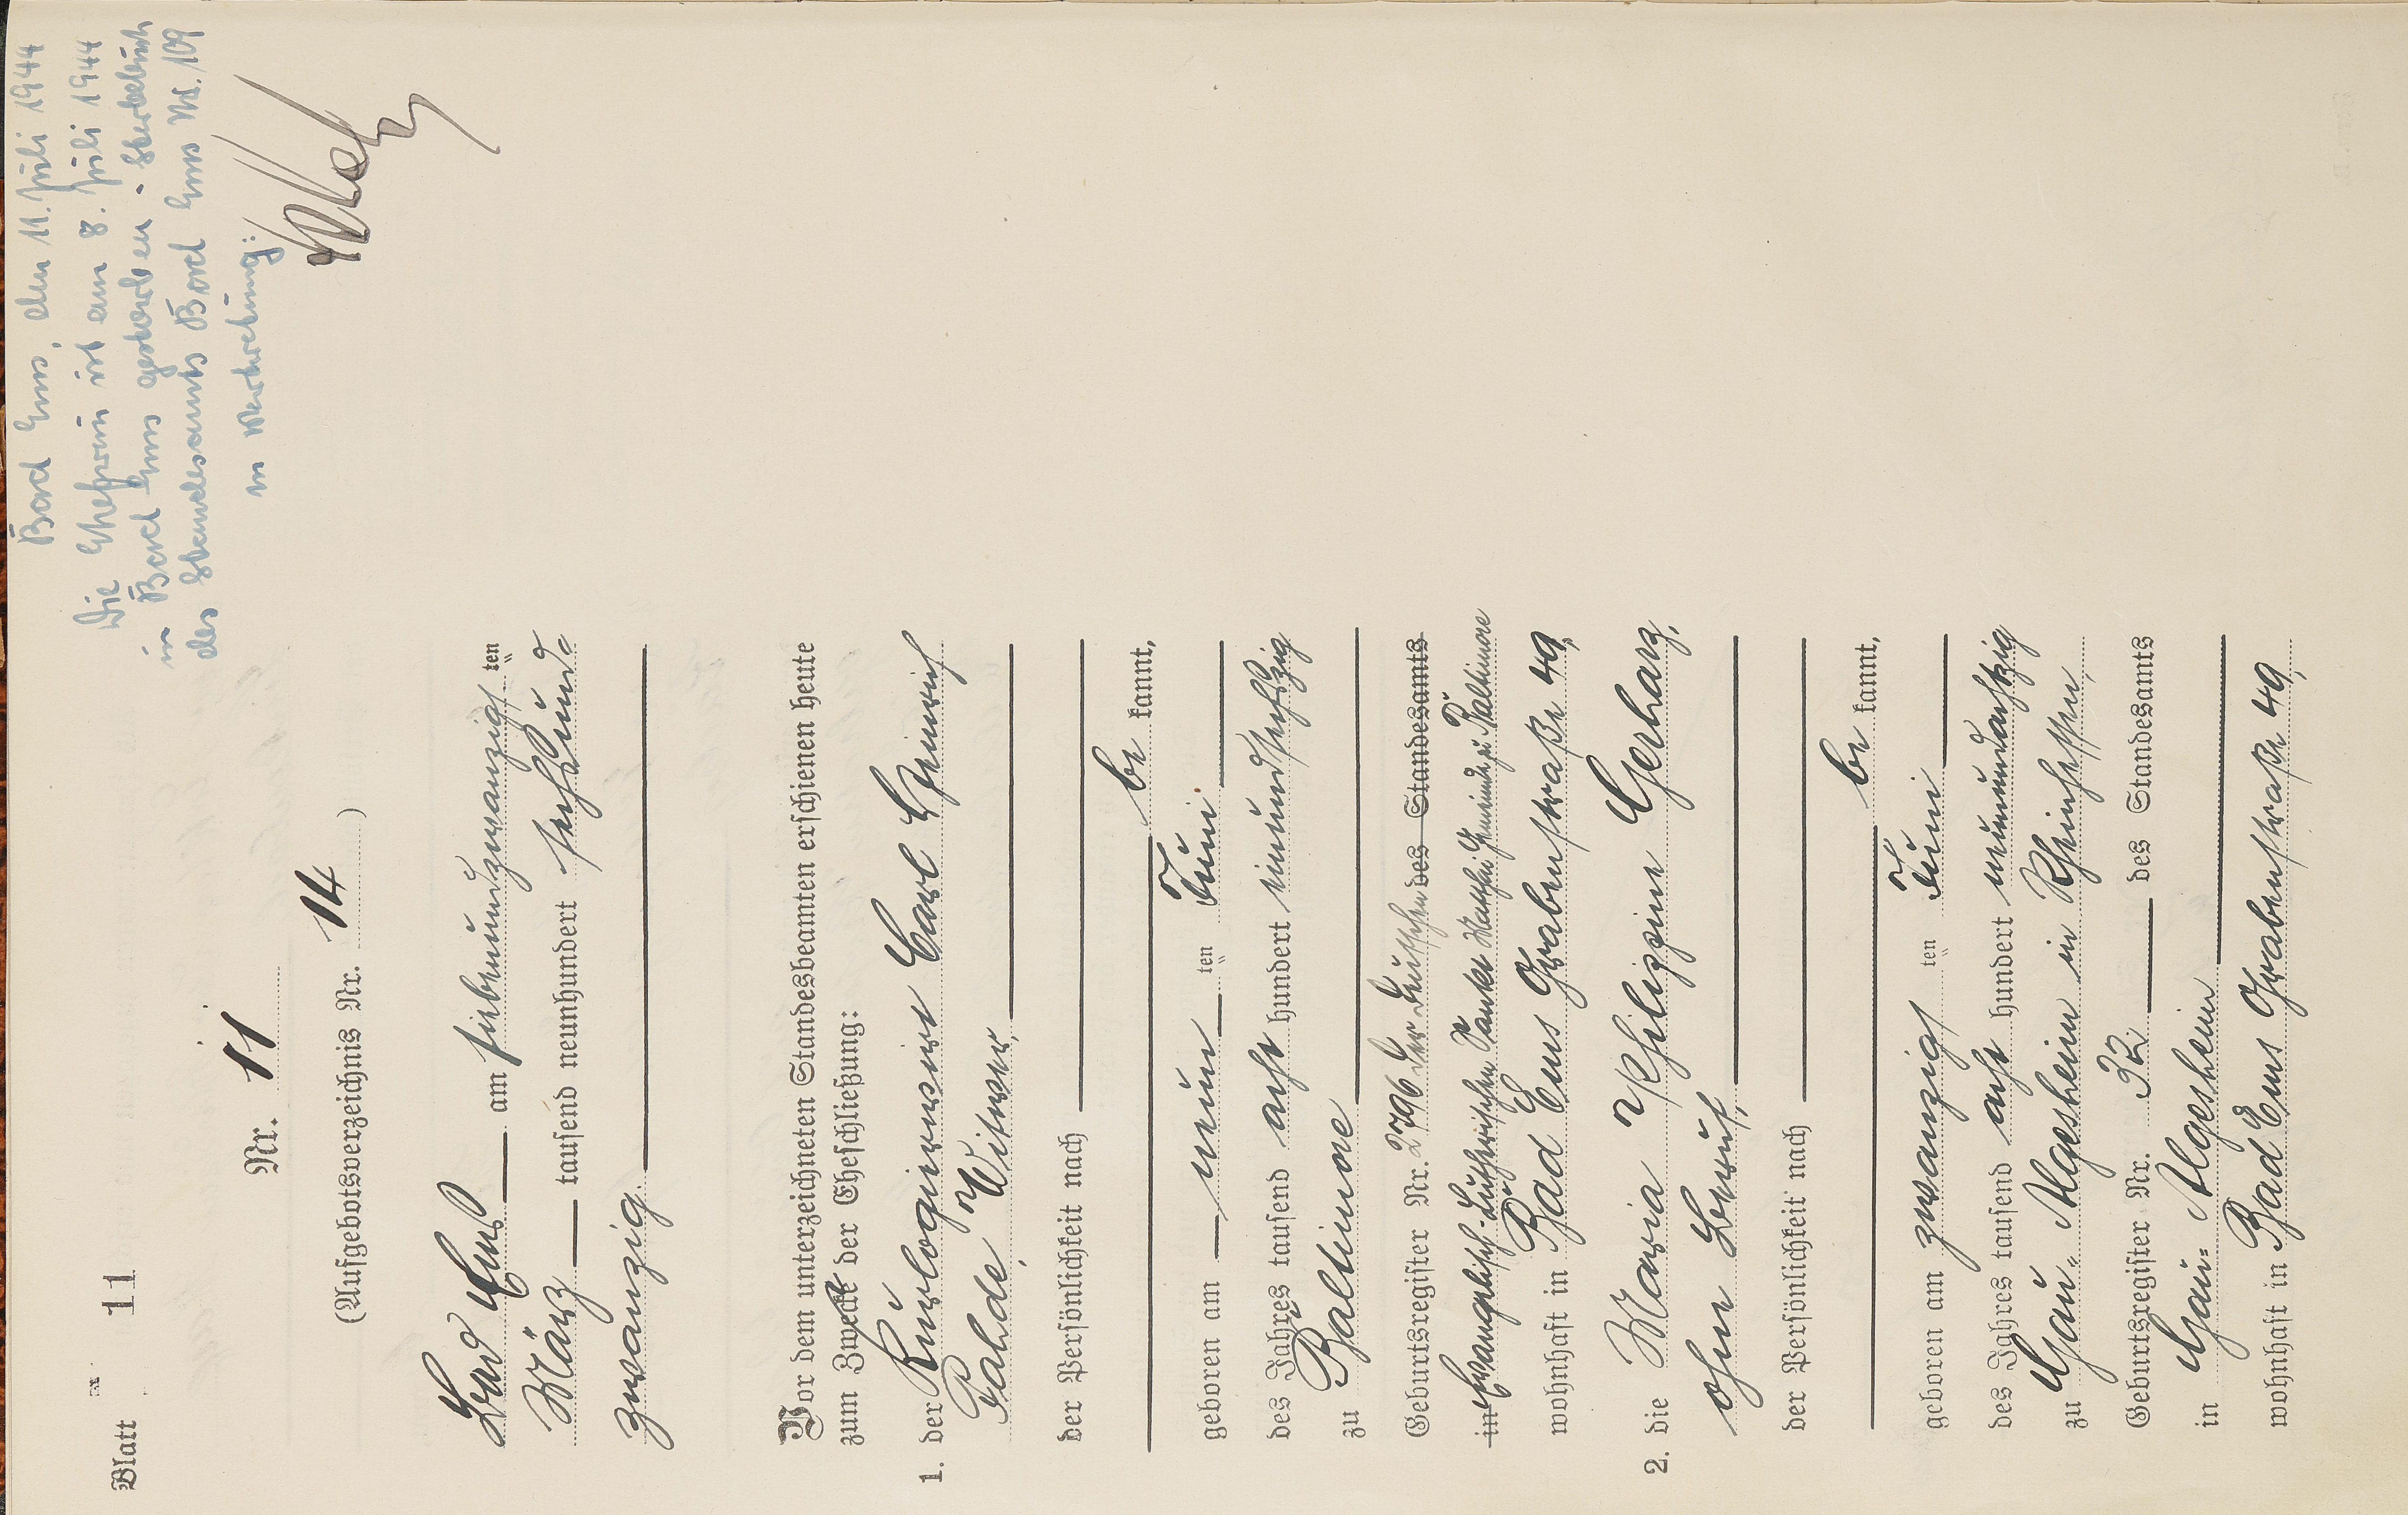 Blatt 11
Nr. 11
(Aufgebotsverzeichnis Nr. 14)
Bad Ems am siebenundzwanzigsten
März tausend neunhundert sechsund-
zwanzig.
Vor dem unterzeichneten Standesbeamten erschienen heute
zum Zweck der Eheschließung:
1. der Kurlogierwirt Carl Heinrich
Pahde, Witwer,
der Persönlichkeit nach
be kannt,
geboren am neun ten Juni
des Jahres tausend acht hundert neunundsechszig
zu Baltimore
Geburtsregister Nr. 2796 der Deutschen des Standesamts
in Evangelisch-Lutherischen Sankt Matthäi Gemeinde zu Baltimore
wohnhaft in Bad Ems Grabenstraße 49,
2. die Maria Philippine Gerharz,
ohne Beruf,
der Persönlichkeit nach
be kannt,
geboren am zwanzigs ten Juni
des Jahres tausend acht hundert neunundachtzig
zu Gau-Algesheim in Rheinhessen,
Geburtsregister Nr. 32 des Standesamts
in Gau-Algesheim
wohnhaft in Bad Ems Grabenstraße 49,
Bad Ems, den 11. Juli 1944
Die Ehefrau ist am 8. Juli 1944
in Bad Ems gestorben. Sterbebuch
des Standesamts Bad Ems Nr. 109
in Vertretung: